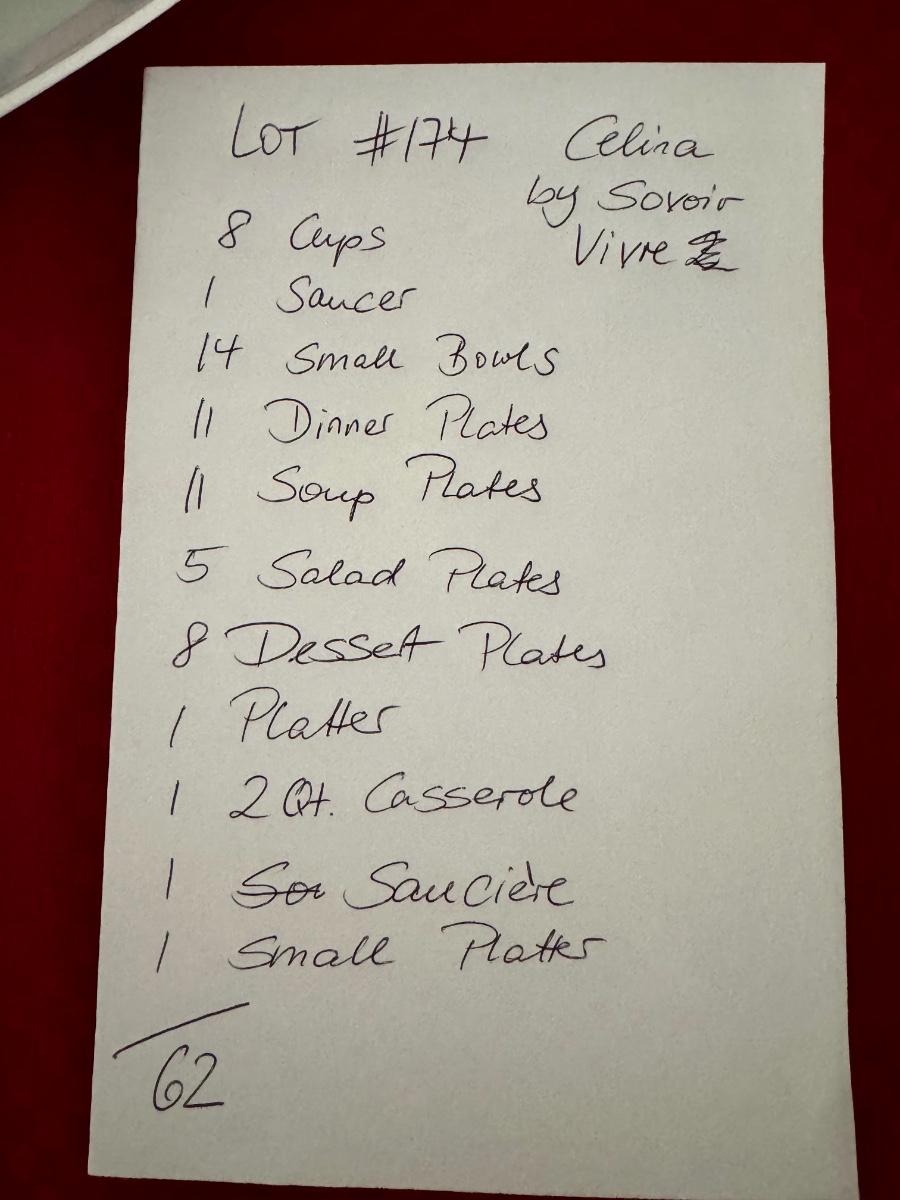 LOT #174 Celina
by Sovoir
Vivre
8 Cups
1 Saucer
14 Small Bowls
11 Dinner Plates
11 Soup Plates
5 Salad Plates
8 Dessert Plates
1 Platter
1 2 Qt. Casserole
1 Saucière
1 Small Platter
62